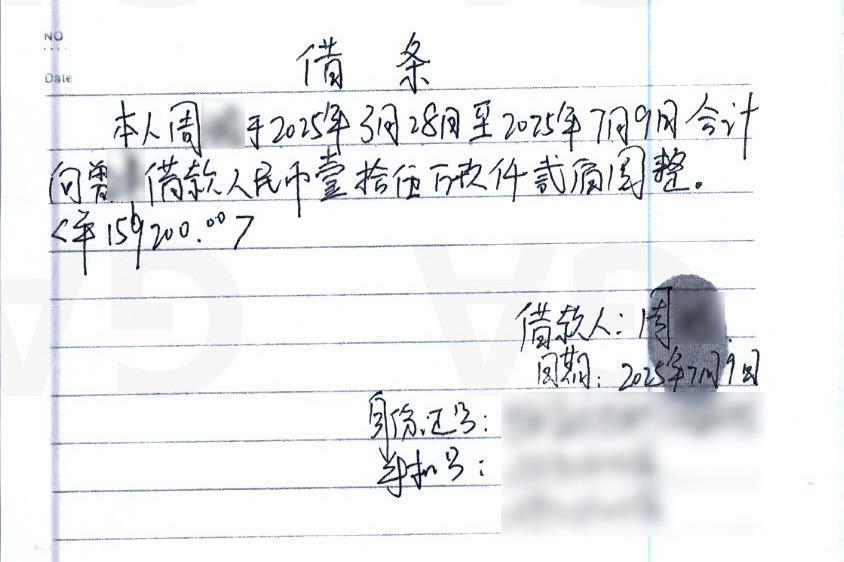 NO
Date
借 条
本人周 于2025年3月28日至2025年7月9日合计
向曾 借款人民币壹拾伍万玖仟贰佰圆整。
<¥159200.00>
借款人：周
日期：2025年7月9日
身份证号：
手机号：